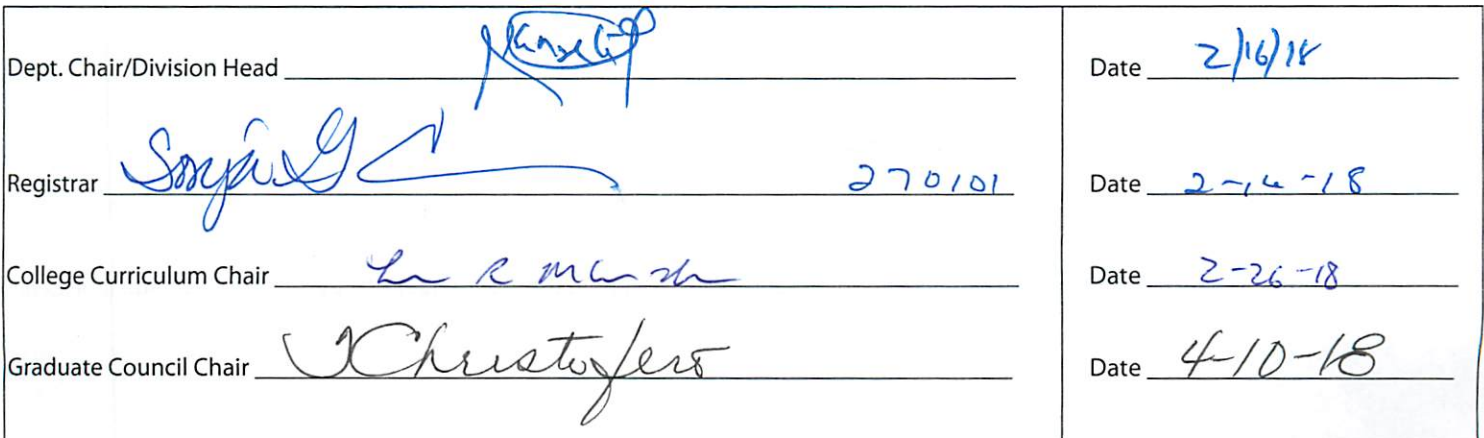 Dept. Chair/Division Head Date 2/16/18
Registrar Sonja G 270101 Date 2-14-18
College Curriculum Chair R Date 2-26-18
Graduate Council Chair TChristofero Date 4-10-18